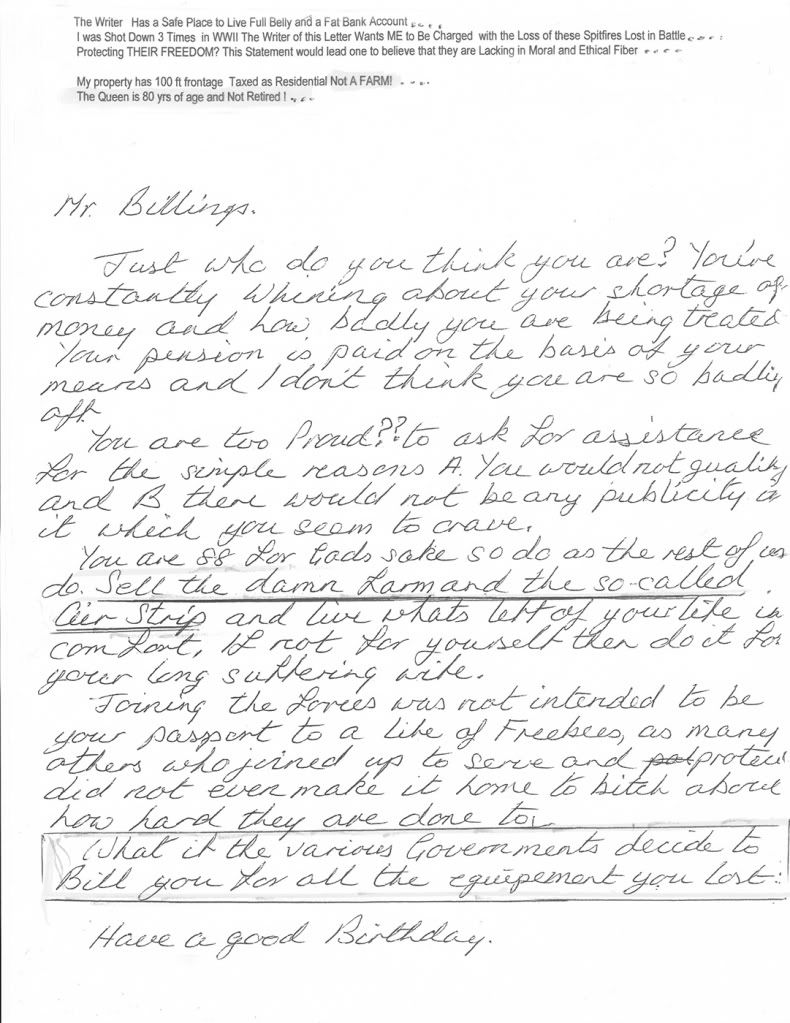 The Writer Has a Safe Place to Live Full Belly and a Fat Bank Account . . . .
I was Shot Down 3 Times in WWII The Writer of this Letter Wants ME to Be Charged with the Loss of these Spitfires Lost in Battle . . . :
Protecting THEIR FREEDOM? This Statement would lead one to believe that they are Lacking in Moral and Ethical Fiber . . . .
My property has 100 ft frontage Taxed as Residential Not A FARM! . . . .
The Queen is 80 yrs of age and Not Retired ! . . .
Mr. Billings.
Just who do you think you are? You've
constantly whining about your shortage of
money and how badly you are being treated
Your pension is paid on the basis of your
means and I don't think you are so badly
off.
You are too Proud?? to ask for assistance
for the simple reasons A. You would not qualify
and B there would not be any publicity in
it which you seem to crave.
You are 88 for Gods sake so do as the rest of us
do. Sell the damn farm and the so-called
Air Strip and live whats left of your life in
comfort, If not for yourself then do it for
your long suffering wife.
Joining the forces was not intended to be
your passport to a life of Freebees, as many
others who joined up to serve and protect
did not even make it home to bitch about
how hard they are done to.
What if the various Governments decide to
Bill you for all the equipement you lost:
Have a good Birthday.